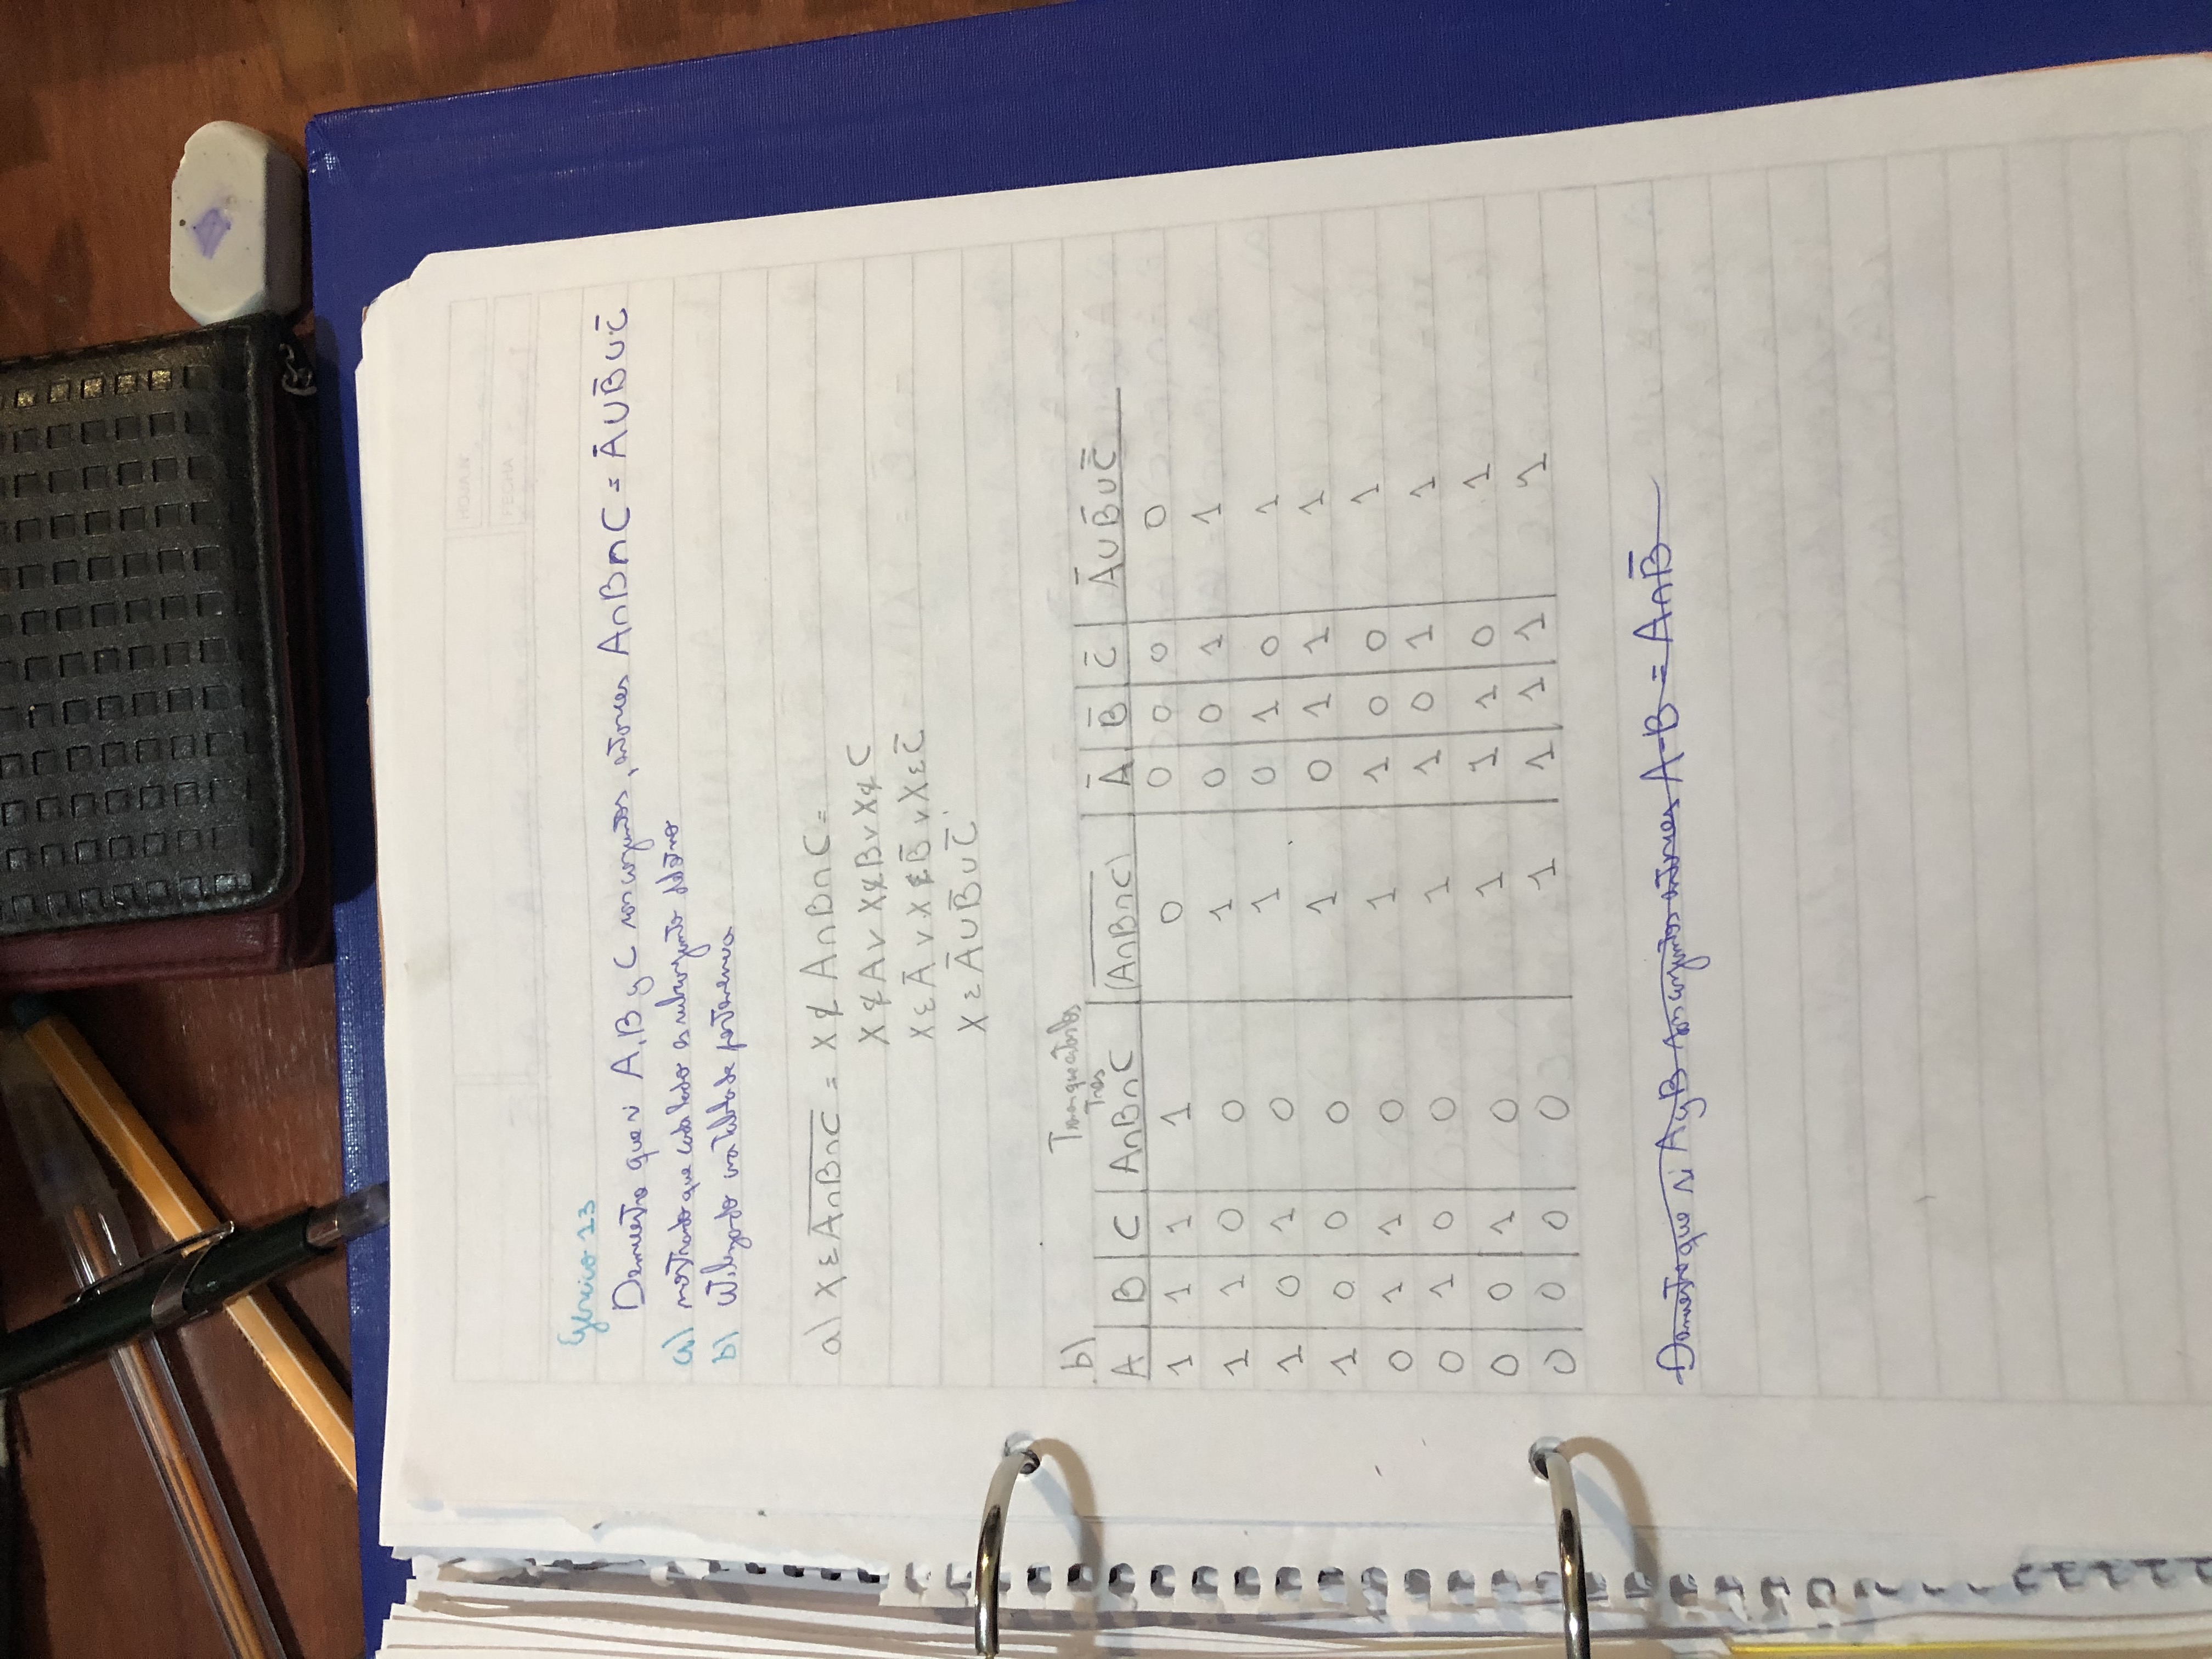 Ejercicio 13
Demuestra que si A, B y C son conjuntos, entonces A∩B∩C = Ā∪B̄∪C̄
a) mostrando que cada lado es subconjunto del otro
b) Utilizando una tabla de pertenencia
a) X ε A̅∩̅B̅∩̅C̅ = X ∉ A∩B∩C =
X ∉ A v X ∉ B v X ∉ C
X ε Ā v X ∉ B̄ v X ε C̄
X ε Ā∪B̄∪C̄
b)
Tienen que estar los
Tres
A | B | C | A∩B∩C | (A̅∩̅B̅∩̅C̅) | Ā | B̄ | C̄ | Ā∪B̄∪C̄
1 1 1 1 0 0 0 0 0
1 1 0 0 1 0 0 1 1
1 0 1 0 1 0 1 0 1
1 0 0 0 1 0 1 1 1
0 1 1 0 1 1 0 0 1
0 1 0 0 1 1 0 1 1
0 0 1 0 1 1 1 0 1
0 0 0 0 1 1 1 1 1
Demuestra que si A y B son conjuntos entonces A-B = A∩B̄